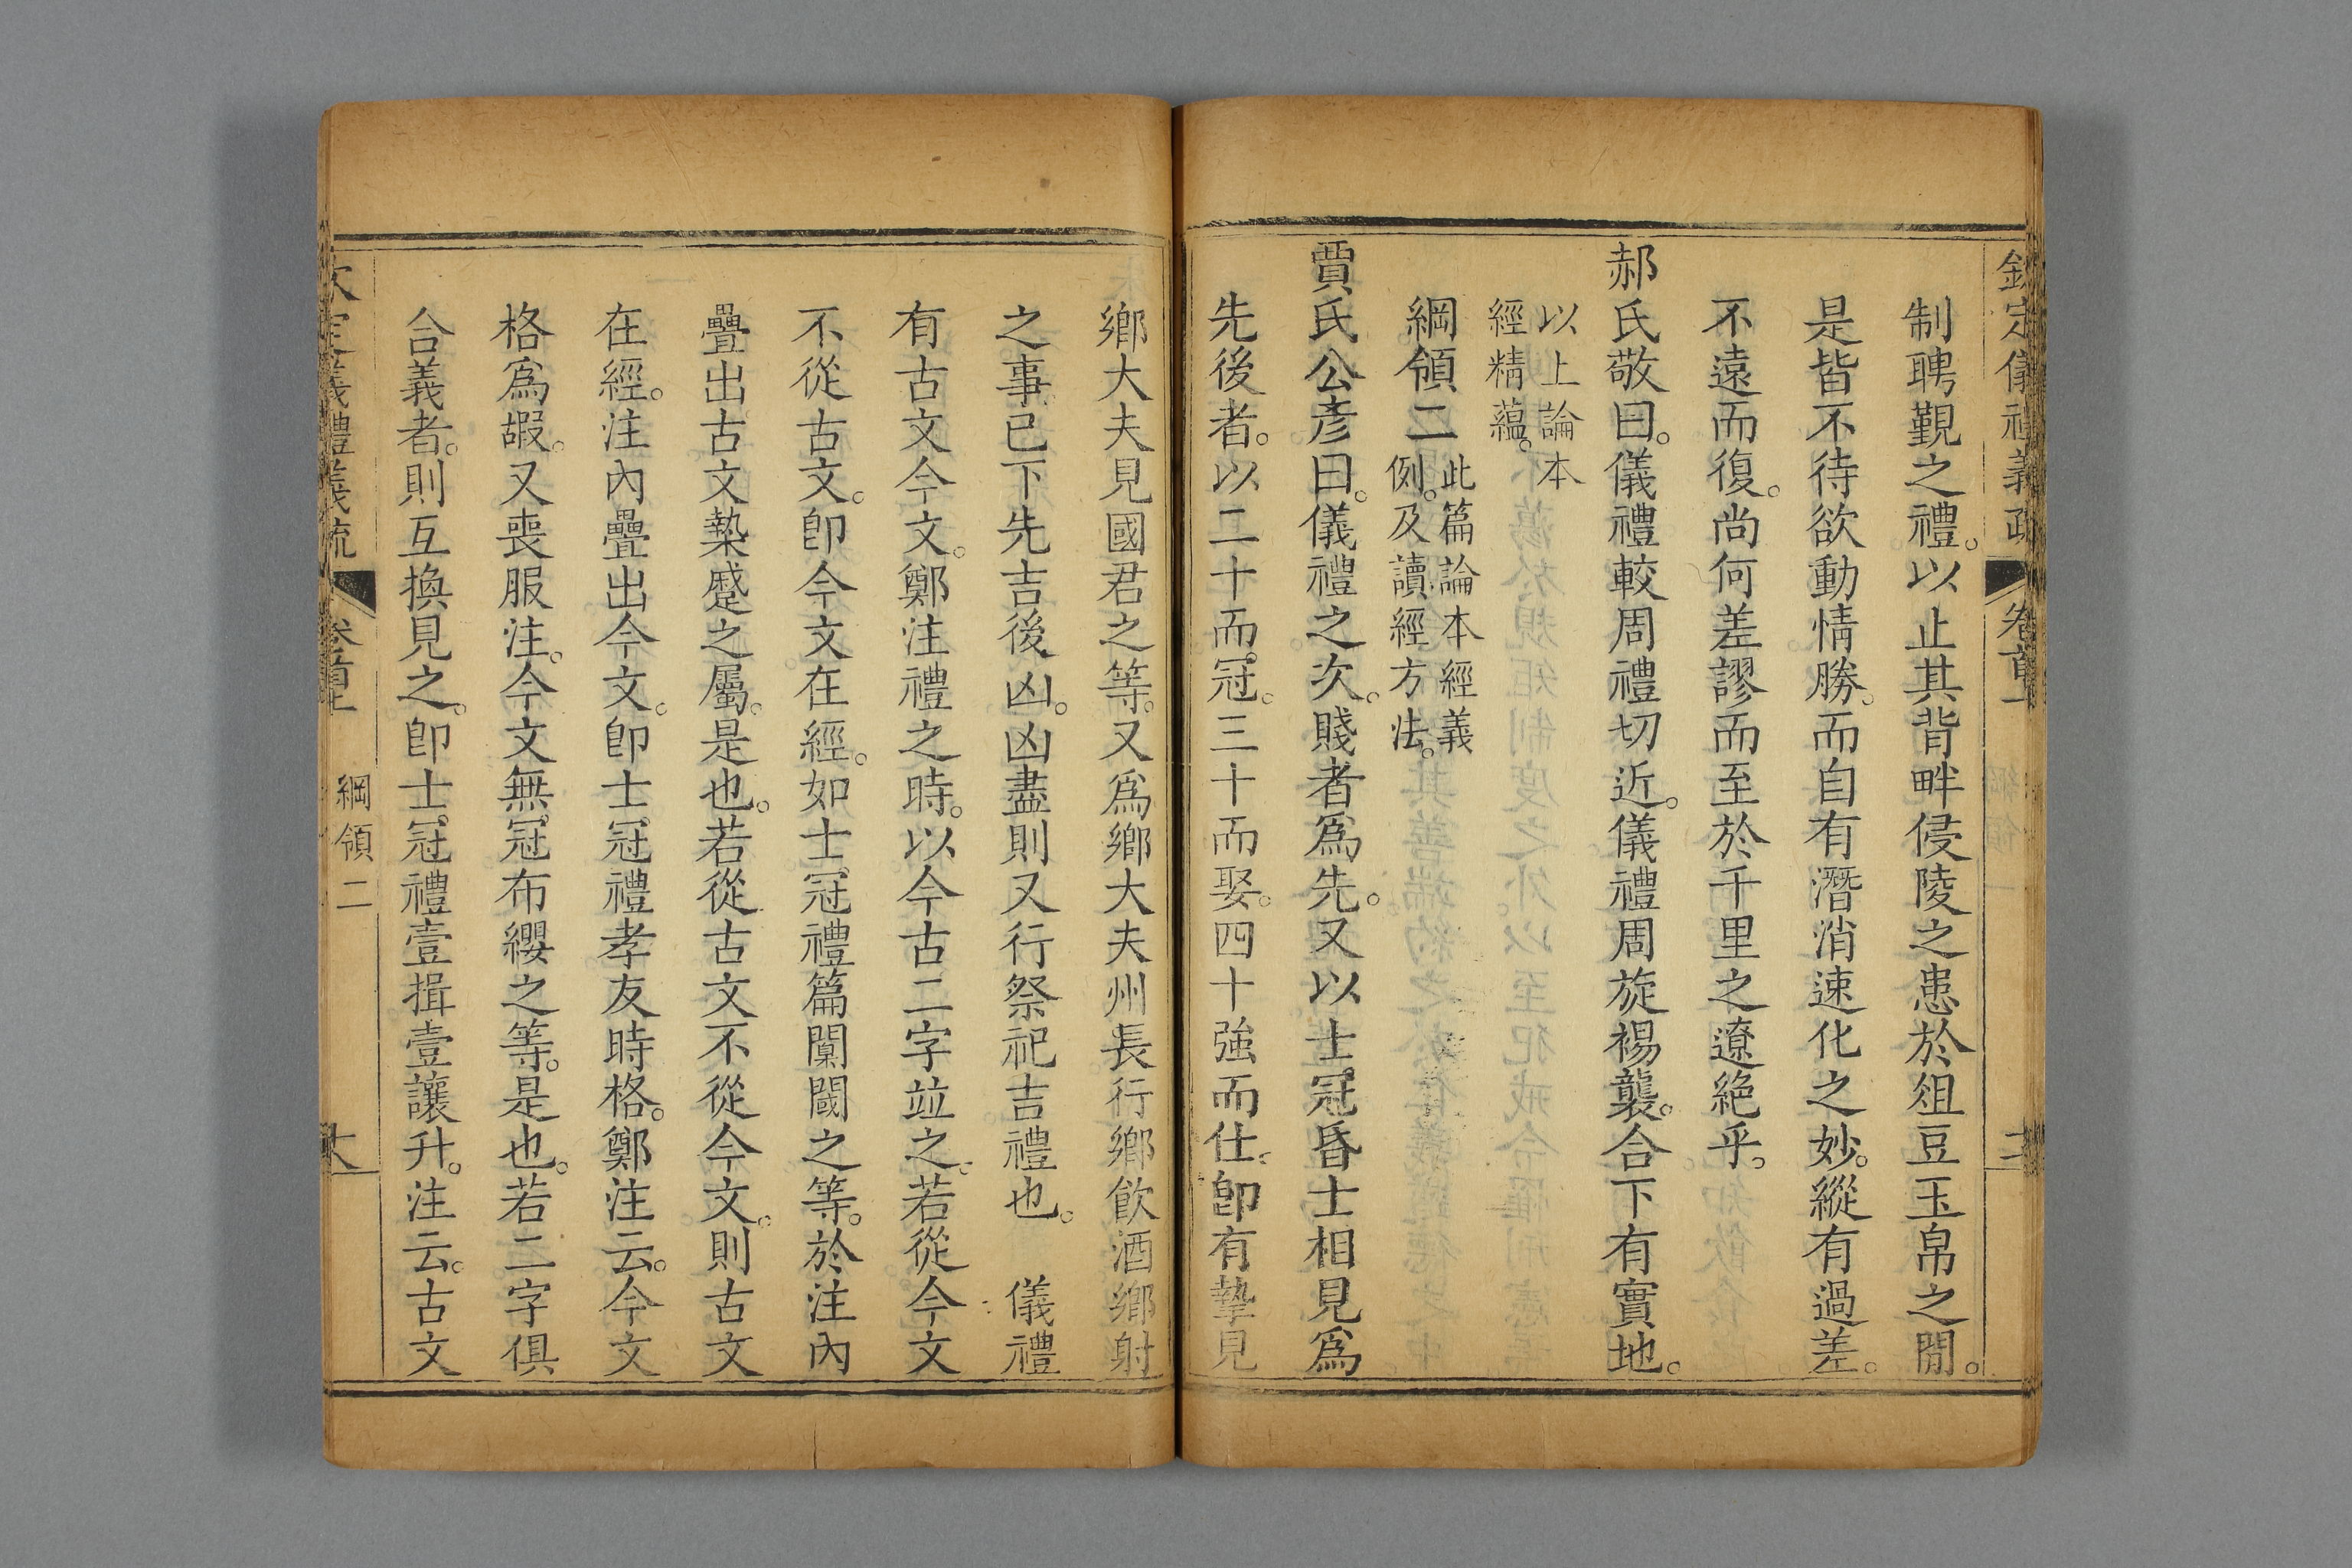 欽定儀禮義疏 卷首上
制聘覲之禮。以止其背畔侵陵之患於俎豆玉帛之閒。
是皆不待欲動情勝。而自有潛消速化之妙。縱有過差。
不遠而復。尚何差謬而至於千里之遼絶乎。
郝氏敬曰。儀禮較周禮切近。儀禮周旋裼襲。合下有實地。
以上論本
經精蘊。
綱領二
此篇論本經義
例。及讀經方法。
賈氏公彥曰。儀禮之次。賤者爲先。又以士冠昏士相見爲
先後者。以二十而冠。三十而娶。四十強而仕。卽有摯見
鄉大夫見國君之等。又爲鄉大夫州長行鄉飲酒鄉射
之事。已下先吉後凶。凶盡則又行祭祀吉禮也。 儀禮
有古文今文。鄭注禮之時。以今古二字竝之。若從今文
不從古文。卽今文在經。如士冠禮篇闑閾之等。於注內
疊出古文槷蹙之屬。是也。若從古文不從今文。則古文
在經。注內疊出今文。卽士冠禮孝友時格。鄭注云。今文
格爲嘏。又喪服注。今文無冠布纓之等。是也。若二字俱
合義者。則互換見之。卽士冠禮壹揖壹讓升。注云。古文
欽定儀禮義疏 卷首上 綱領二